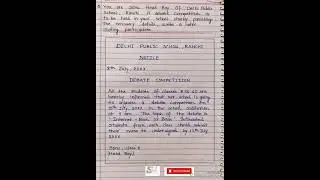 You are Sonu Head Boy of Delhi Public
School, Ranchi. A debate competition is
to be held in your school shortly. providing
the necessary details, write a notice
inviting participation.
DELHI PUBLIC SCHOOL, RANCHI
NOTICE
8th July, 20XX
DEBATE COMPETITION
All the students of classes to are
hereby informed that our school is going
to organise a debate competition on
July, 20XX in the school auditorium
at 9 am. The topic of the debate is
'Internet - Boon or Bane'. Interested
students from each class should submit
their name to undersigned by 12th July
20XX.
Sonu,
(Head Boy)
SUBSCRIBE